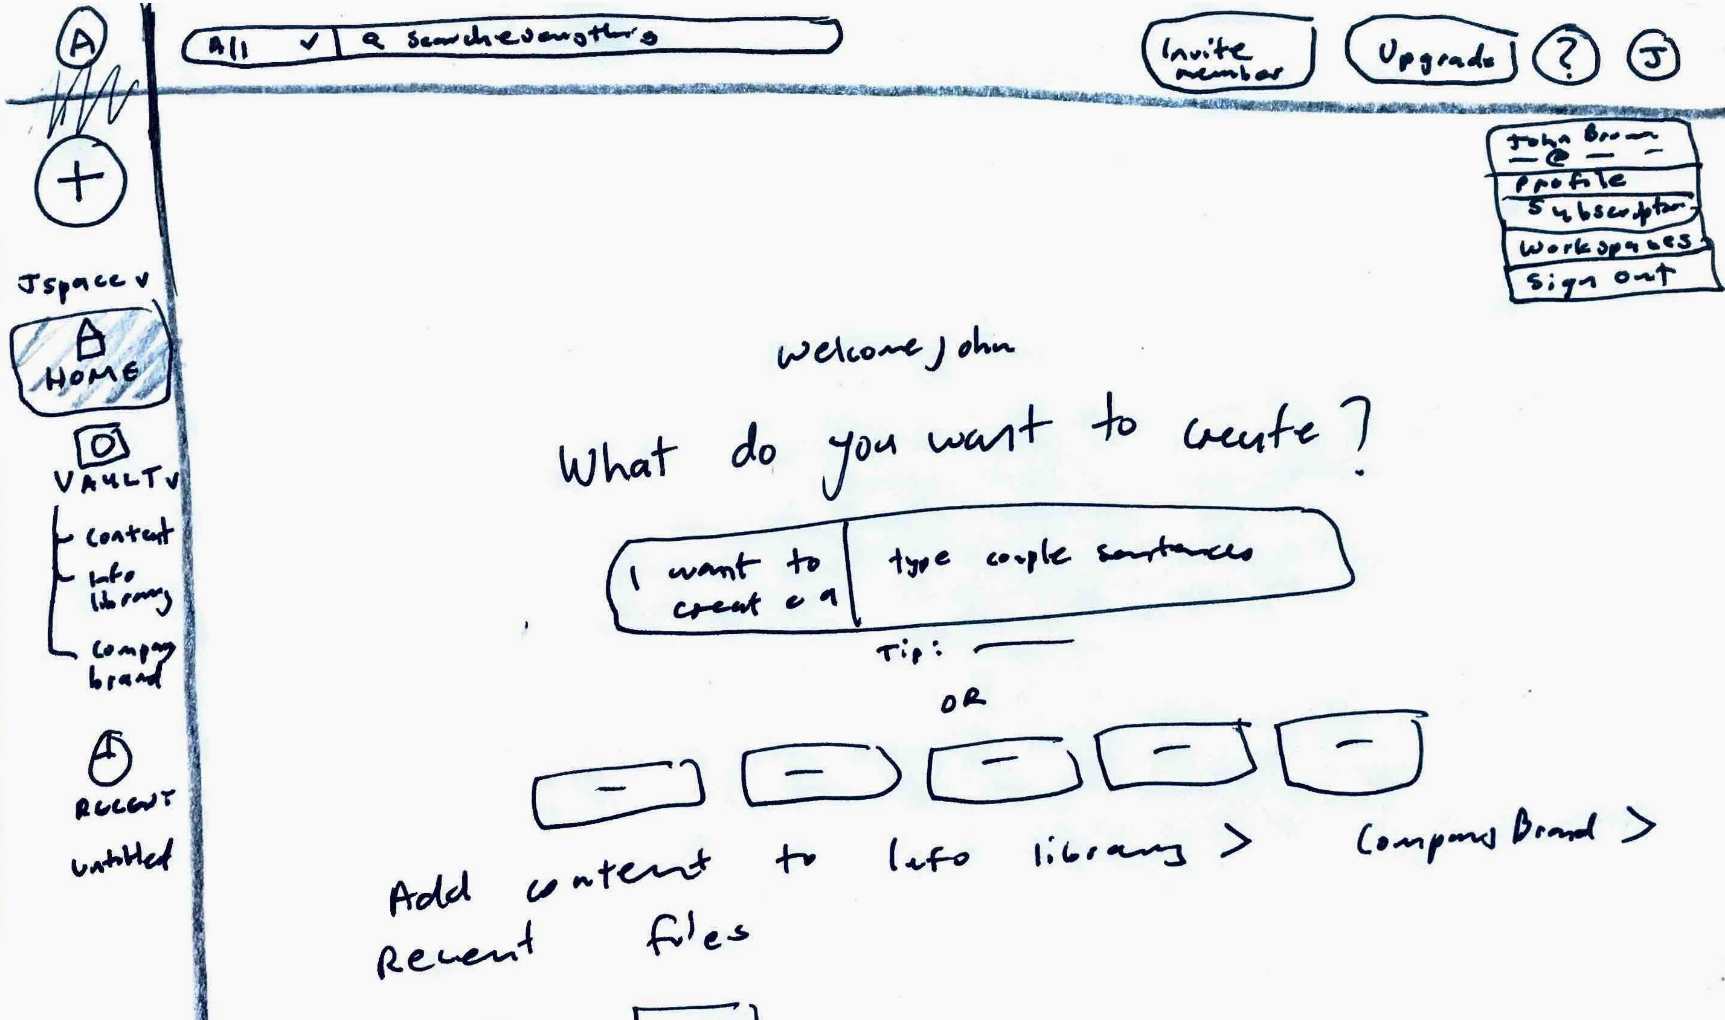 A
All
search everything
Invite
member
Upgrade
?
J
John Brown
@
Profile
Subscription
Workspaces
Sign out
+
Jspace
HOME
VAULT
Content
Info
library
Company
brand
RECENT
untitled
Welcome John
What do you want to create?
I want to
create a
type couple sentences
Tip:
OR
Add content to Info library >
Company Brand >
Recent files